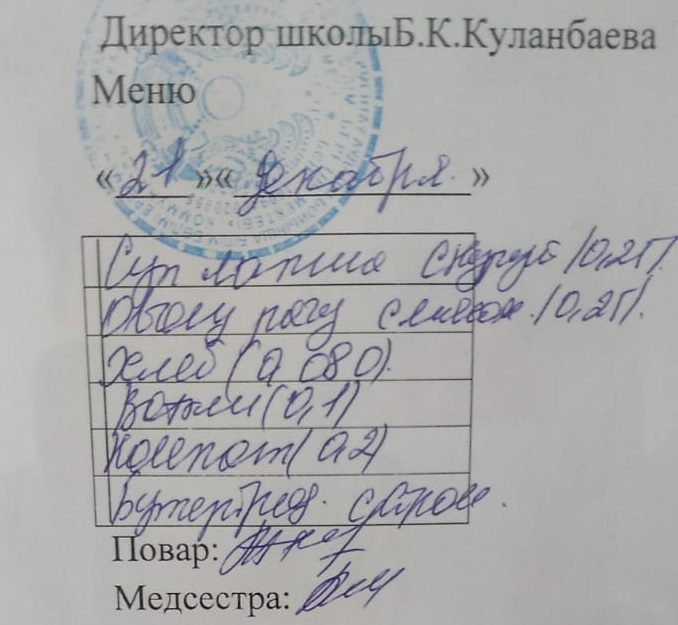 Директор школыБ.К.Куланбаева
Меню
«21»«декабря»
Суп лапша с курицей /0,2г/.
Овощ рагу с мясом. /0,2г/.
Хлеб (0,080).
(0,1)
Компот (0,2)
Бутерброд. с сыром.
Повар:
Медсестра: